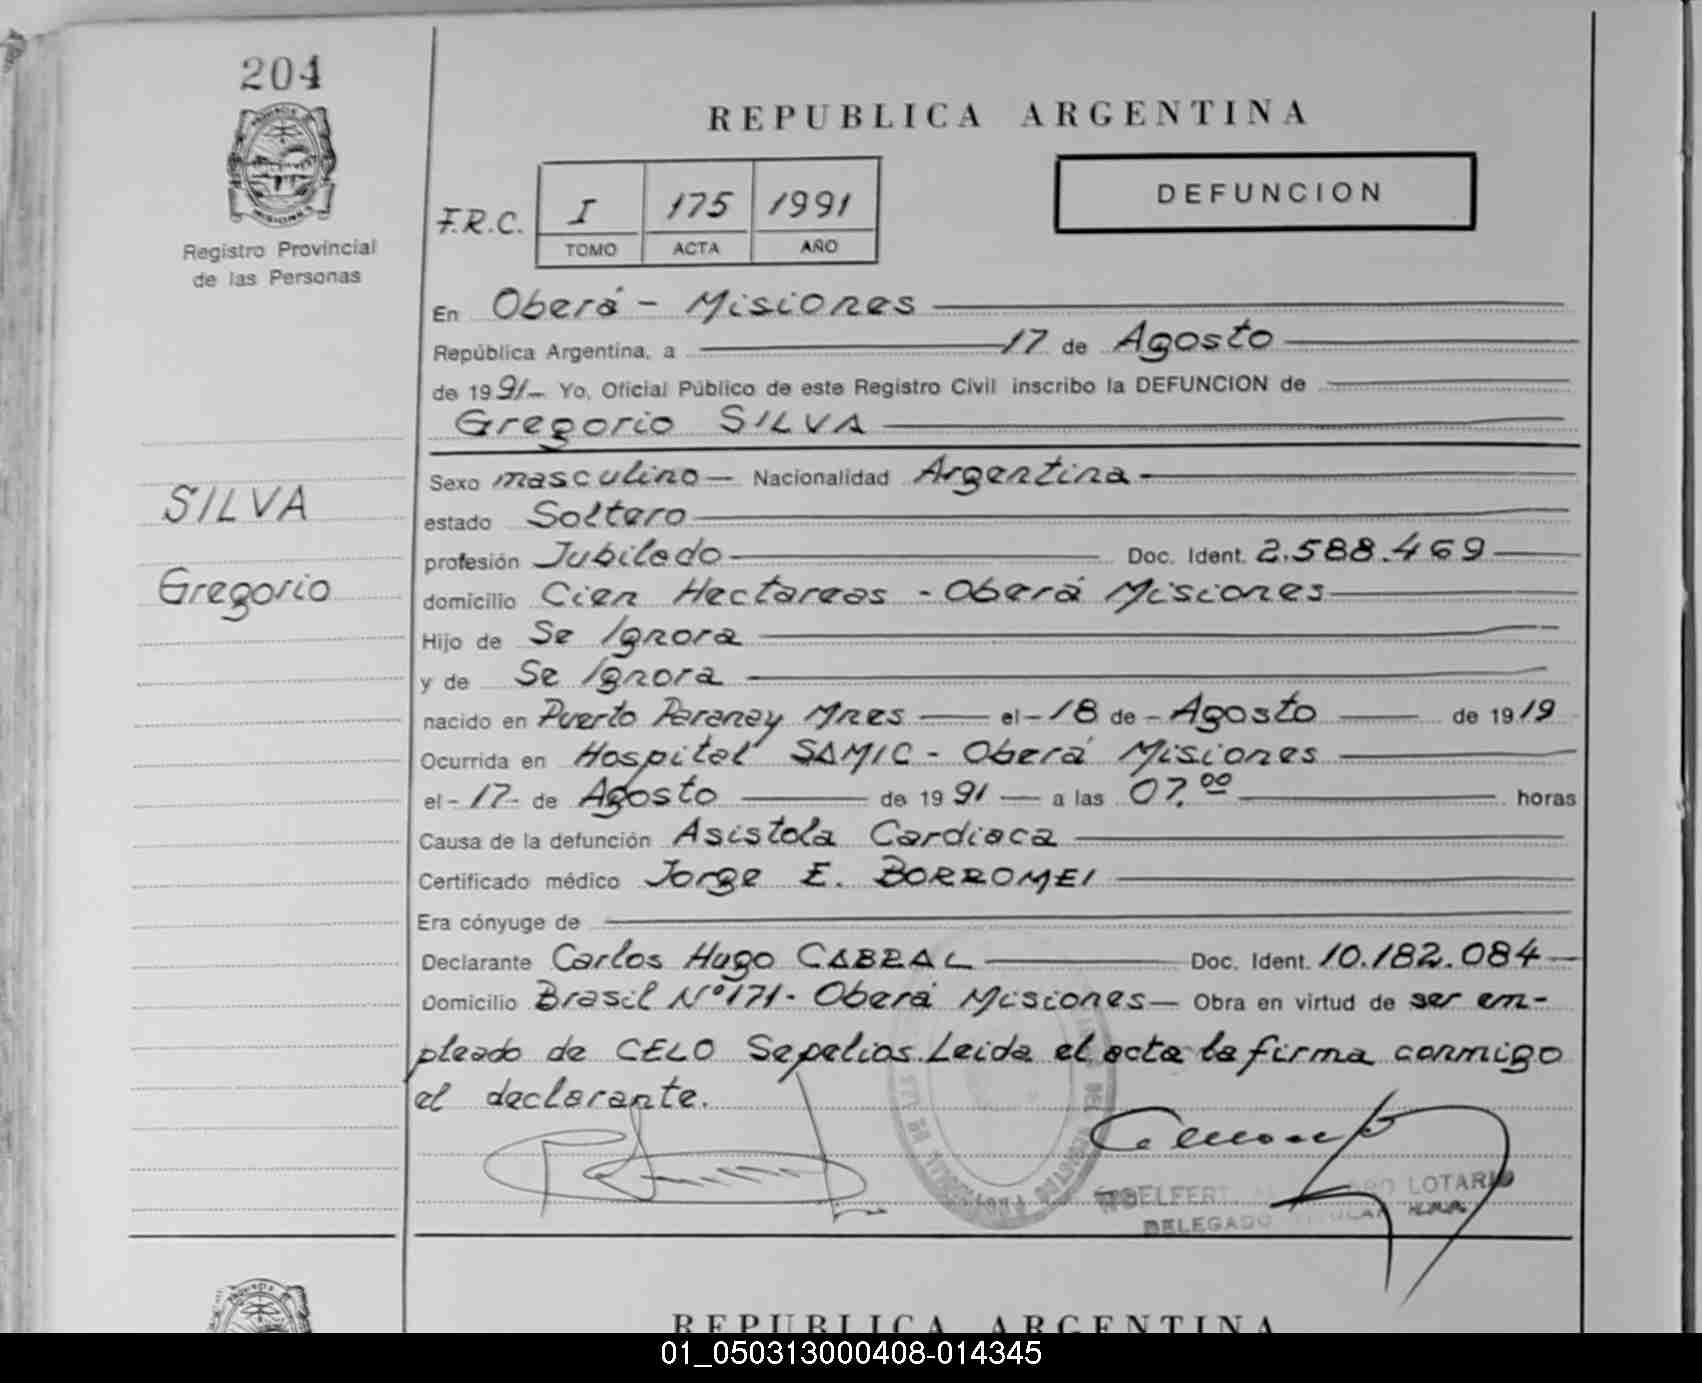 204
REPUBLICA ARGENTINA
PROVINCIA
MISIONES
Registro Provincial
de las Personas
F.R.C.
I 175 1991
TOMO ACTA AÑO
DEFUNCION
En Oberá - Misiones
República Argentina, a 17 de Agosto
de 1991 Yo, Oficial Público de este Registro Civil inscribo la DEFUNCION de
Gregorio SILVA
SILVA
Gregorio
Sexo masculino Nacionalidad Argentina
estado Soltero
profesión Jubilado Doc. Ident. 2.588.469
domicilio Cien Hectareas - Oberá Misiones
Hijo de Se Ignora
y de Se Ignora
nacido en Puerto Paranay Mnes el 18 de Agosto de 1919
Ocurrida en Hospital SAMIC - Oberá Misiones
el 17 de Agosto de 1991 a las 07,00 horas
Causa de la defunción Asistola Cardiaca
Certificado médico Jorge E. BORROMEI
Era cónyuge de
Declarante Carlos Hugo CABRAL Doc. Ident. 10.182.084
Domicilio Brasil Nº171- Oberá Misiones Obra en virtud de ser em-
pleado de CELO Sepelios. Leida el acta la firma conmigo
el declarante.
LOTARIO
DELEGADO TITULAR
REPUBLICA ARGENTINA
01_050313000408-014345